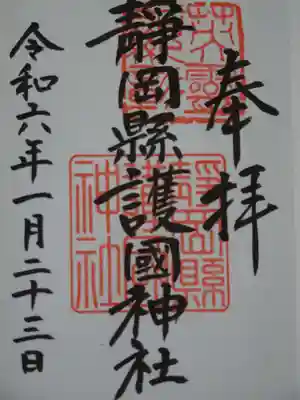 奉拝
靜岡縣護國神社
令和六年一月二十三日
靜岡縣
護國
神社